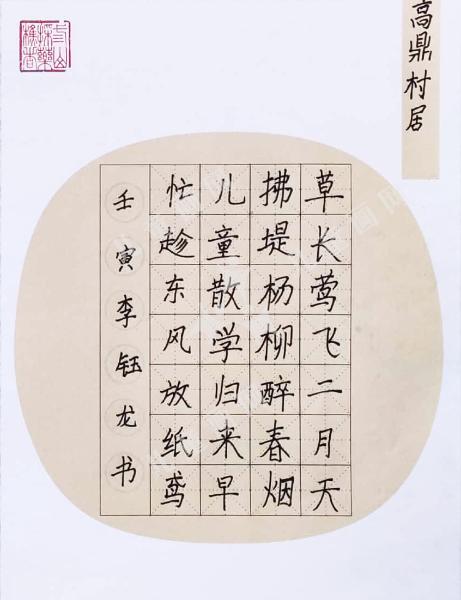 高鼎村居
草长莺飞二月天
拂堤杨柳醉春烟
儿童散学归来早
忙趁东风放纸鸢
壬寅李钰龙书